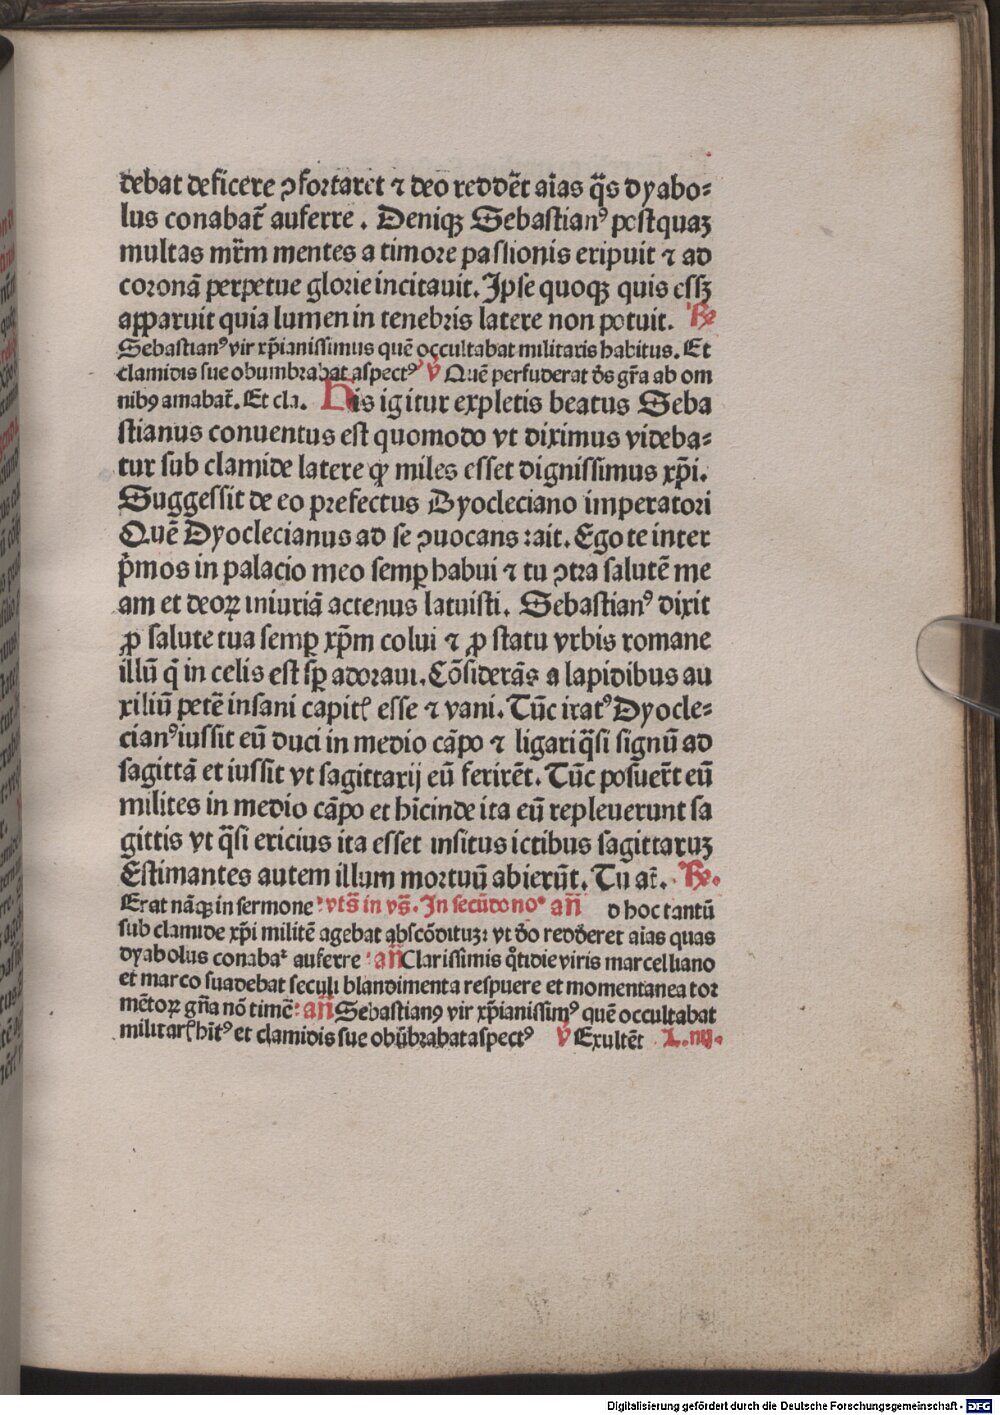 debat deficere ꝯfortaret ⁊ deo reddēt aīas q̄s dyabo⸗
lus conabat̄ auferre . Deniqꝫ Sebastianꝰ postquaꝫ
multas mr̄m mentes a timore passionis eripuit ⁊ ad
coronā perpetue glorie incitauit. Ipse quoqꝫ quis essꝫ
apparuit quia lumen in tenebris latere non potuit. ℟
Sebastianꝰ vir xp̄ianissimus quē occultabat militaris habitus. Et
clamidis sue obumbrabat aspectꝰ ℣ Quē perfuderat dn̄s gr̄a ab om
nibꝫ amabat̄. Et cla. His igitur expletis beatus Seba
stianus conuentus est quomodo vt diximus videba⸗
tur sub clamide latere ꝙ miles esset dignissimus xp̄i.
Suggessit de eo prefectus Dyocleciano imperatori
Quē Dyoclecianus ad se ꝯuocans :ait. Ego te inter
p̄mos in palacio meo semꝑ habui ⁊ tu ꝯtra salutē me
am et deoꝝ iniuriā actenus latuisti. Sebastianꝰ dixit
ꝓ salute tua semꝑ xp̄m colui ⁊ ꝓ statu vrbis romane
illū q̄ in celis est sꝑ adoraui. Cōsiderās a lapidibus au
xiliū petē insani capitꝭ esse ⁊ vani. Tūc iratꝰ Dyocle⸗
cianꝰ iussit eū duci in medio cāpo ⁊ ligari q̄si signū ad
sagittā et iussit vt sagittarij eū ferirēt. Tūc posuer̄t eū
milites in medio cāpo et hīcinde ita eū repleuerunt sa
gittis vt q̄si ericius ita esset insitus ictibus sagittaruꝫ
Estimantes autem illum mortuū abierūt. Tu at̄. ℟.
Erat nāqꝫ in sermone :vts̄ in vs̄. In secūdo noꝰ an̄ d hoc tantū
sub clamide xp̄i militē agebat abscōdituꝫ: vt dō redderet aīas quas
dyabolus conabaᵗ auferre :an̄ Clarissimis q̊tidie viris marcelliano
et marco suadebat seculi blandimenta respuere et momentanea tor
mētoꝝ gn̄a nō timē: an̄ Sebastianꝰ vir xp̄ianissimꝰ quē occultabat
militarꝭ hītꝰ et clamidis sue obūbrabat aspectꝰ ℣ Exultēt L. iiij.
Digitalisierung gefördert durch die Deutsche Forschungsgemeinschaft - DFG